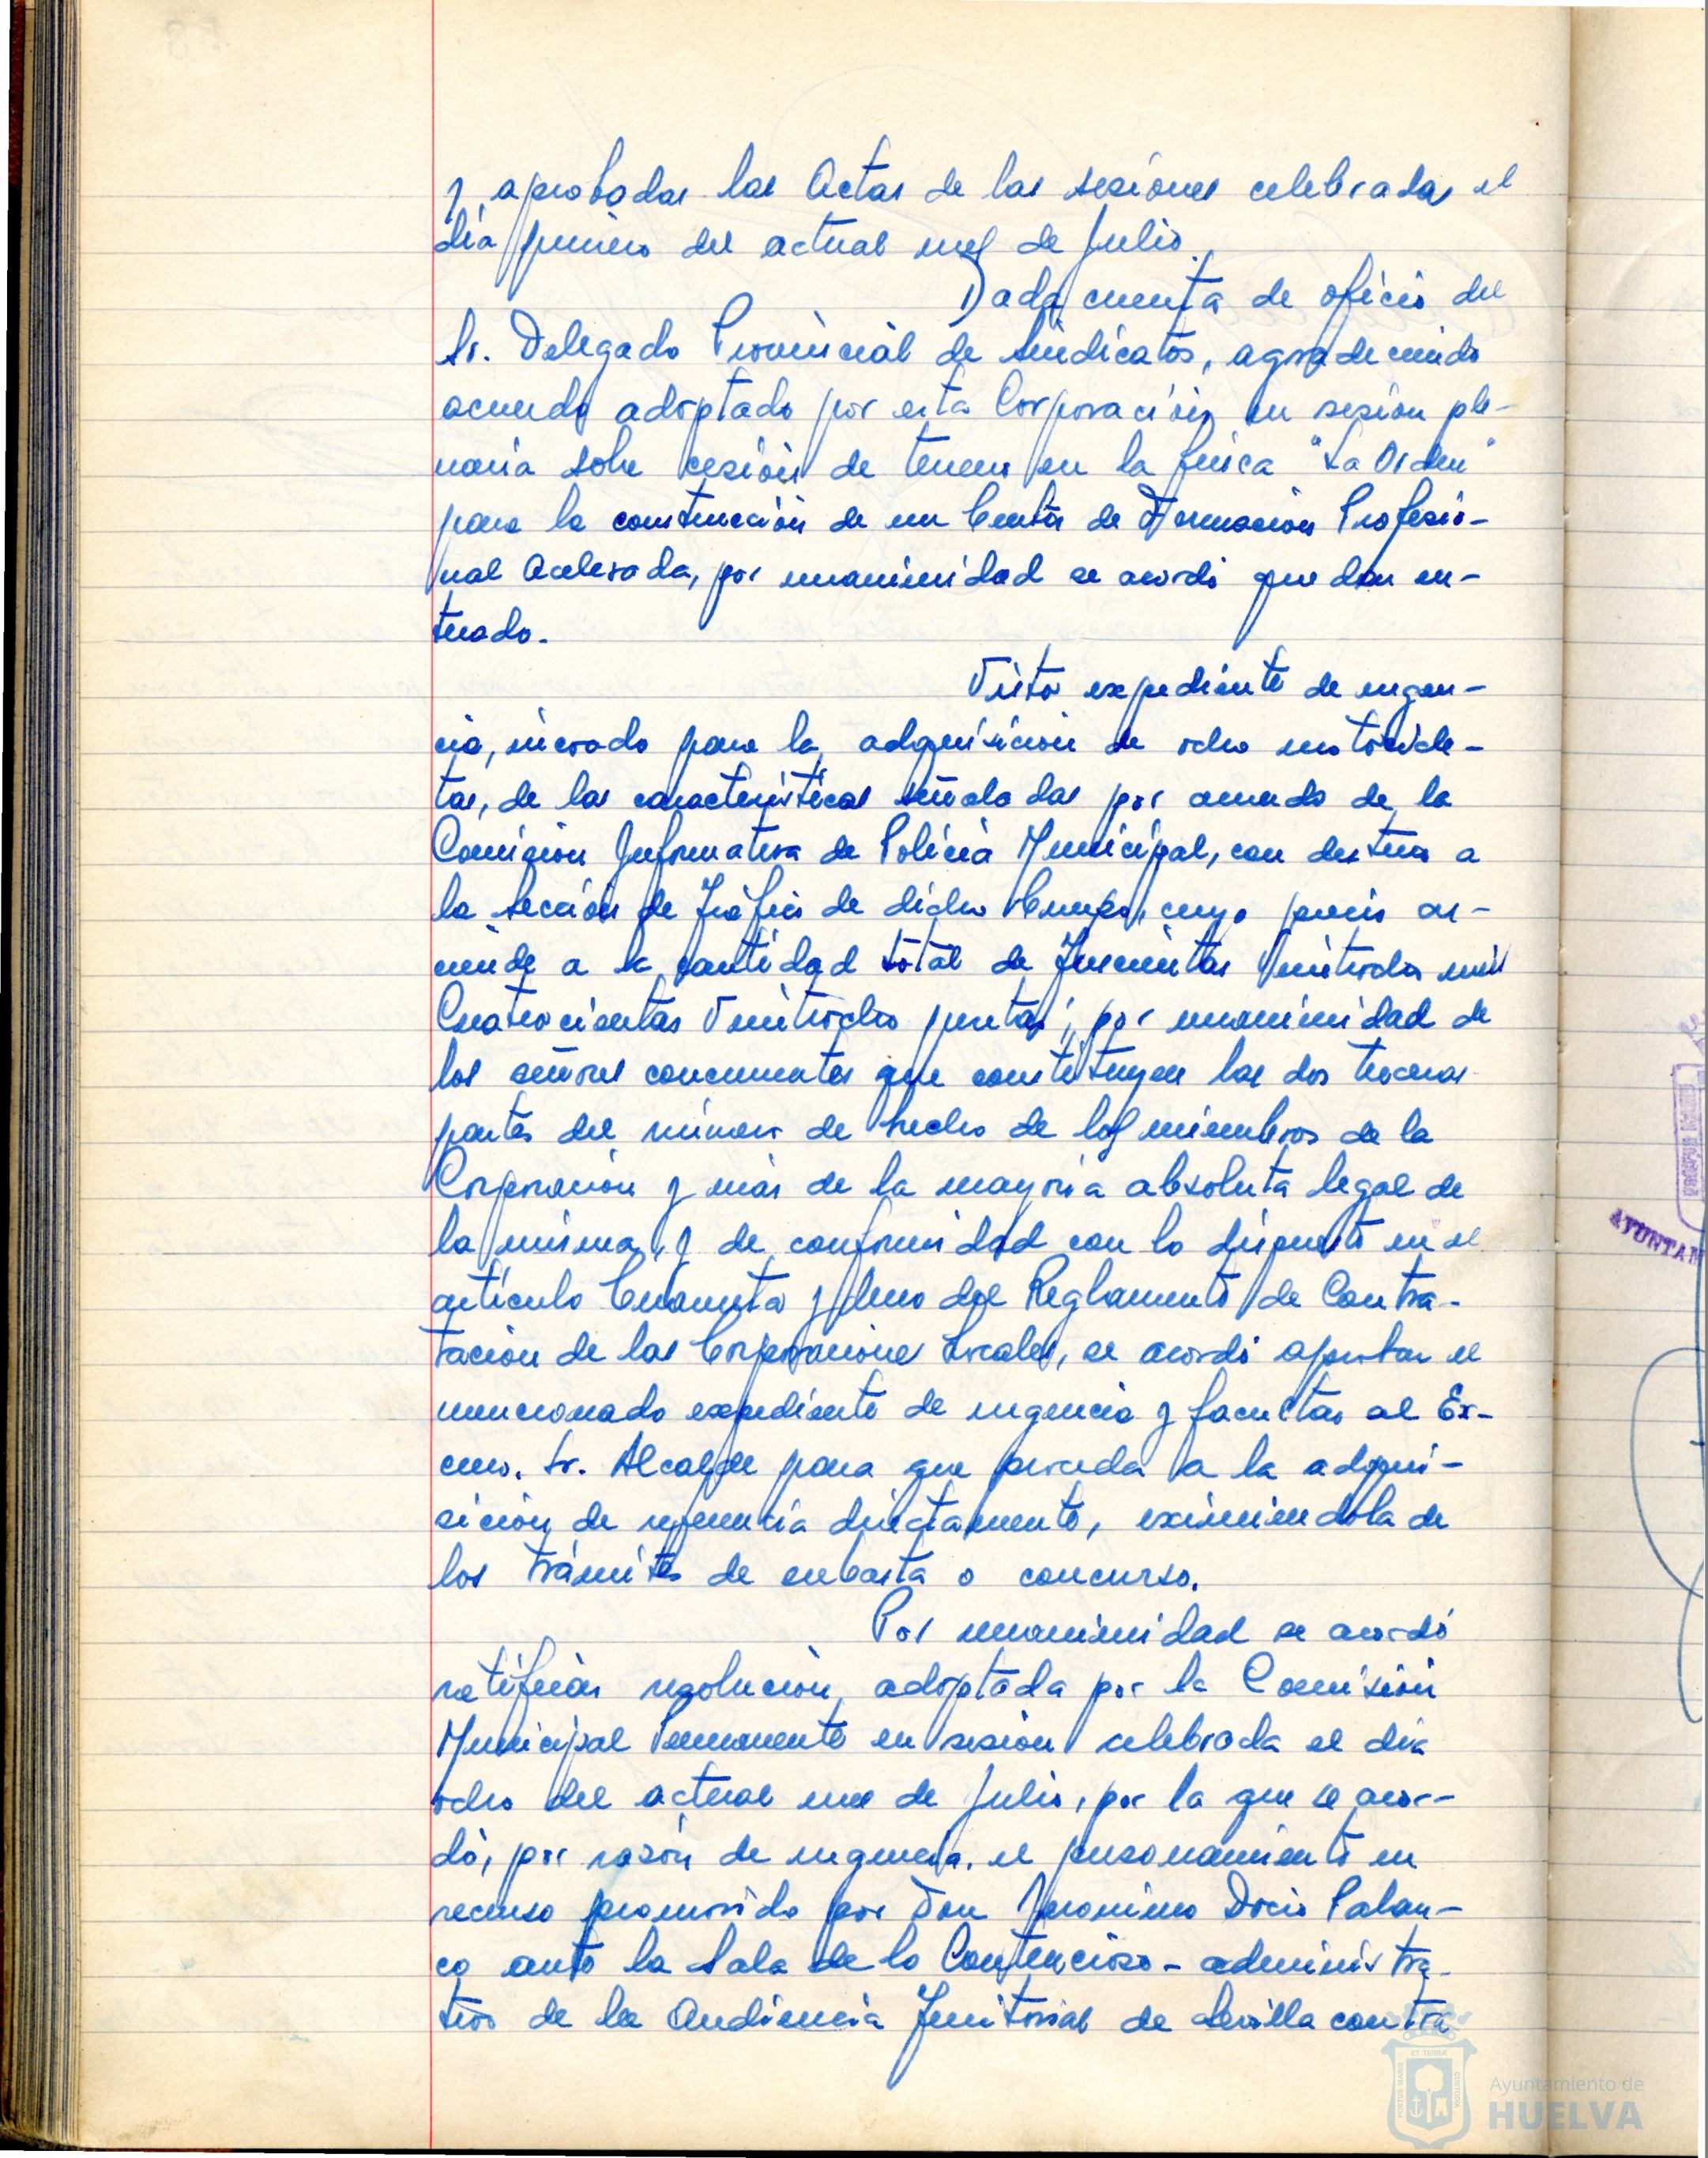 y aprobadas las Actas de las sesiones celebradas el
día primero del actual mes de Julio.
Dada cuenta de oficio del
Sr. Delegado Provincial de Sindicatos, agradeciendo
acuerdo adoptado por esta Corporación en sesión ple-
naria sobre cesión de terreno en la finca "La Orden"
para la construcción de un Centro de Formación Profesio-
nal Acelerada, por unanimidad se acordó quedar en-
terado.
Visto expediente de urgen-
cia, incoado para la adquisición de ocho motocicle-
tas, de las características señaladas por acuerdo de la
Comisión Informativa de Policía Municipal, con destino a
la Sección de Tráfico de dicho Cuerpo, cuyo precio as-
ciende a la cantidad total de Trescientas Veintiocho mil
Cuatrocientas Veintiocho pesetas; por unanimidad de
los señores concurrentes que constituyen las dos terceras
partes del número de hecho de los miembros de la
Corporación y más de la mayoría absoluta legal de
la misma, y de conformidad con lo dispuesto en el
artículo Cuarenta y Uno del Reglamento de Contra-
tación de las Corporaciones Locales, se acordó aprobar el
mencionado expediente de urgencia y facultar al Ex-
cmo. Sr. Alcalde para que proceda a la adqui-
sición de referencia directamente, eximiendola de
los trámites de subasta o concurso.
Por unanimidad se acordó
ratificar resolución adoptada por la Comisión
Municipal Permanente en sesión celebrada el día
ocho del actual mes de Julio, por la que se acor-
dó, por razón de urgencia, el personamiento en
recurso promovido por Don Jeronimo Docio Palan-
co ante la Sala de lo Contencioso-administra-
tivo de la Audiencia Territorial de Sevilla contra
AYUNTAM
Ayuntamiento de
HUELVA